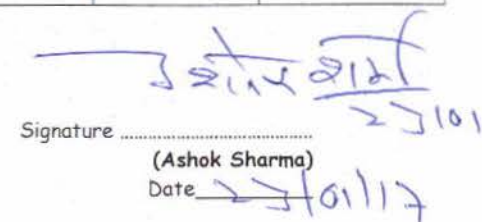 अशोक शर्मा
23/01
Signature ..........................................
(Ashok Sharma)
Date 23/01/17